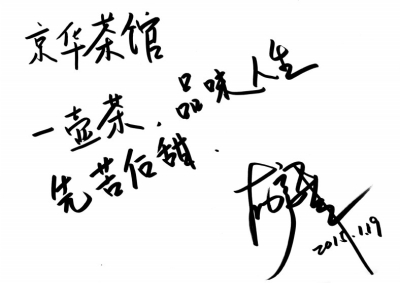 京华茶馆
一壶茶，品味人生
先苦后甜．
2015.1.19